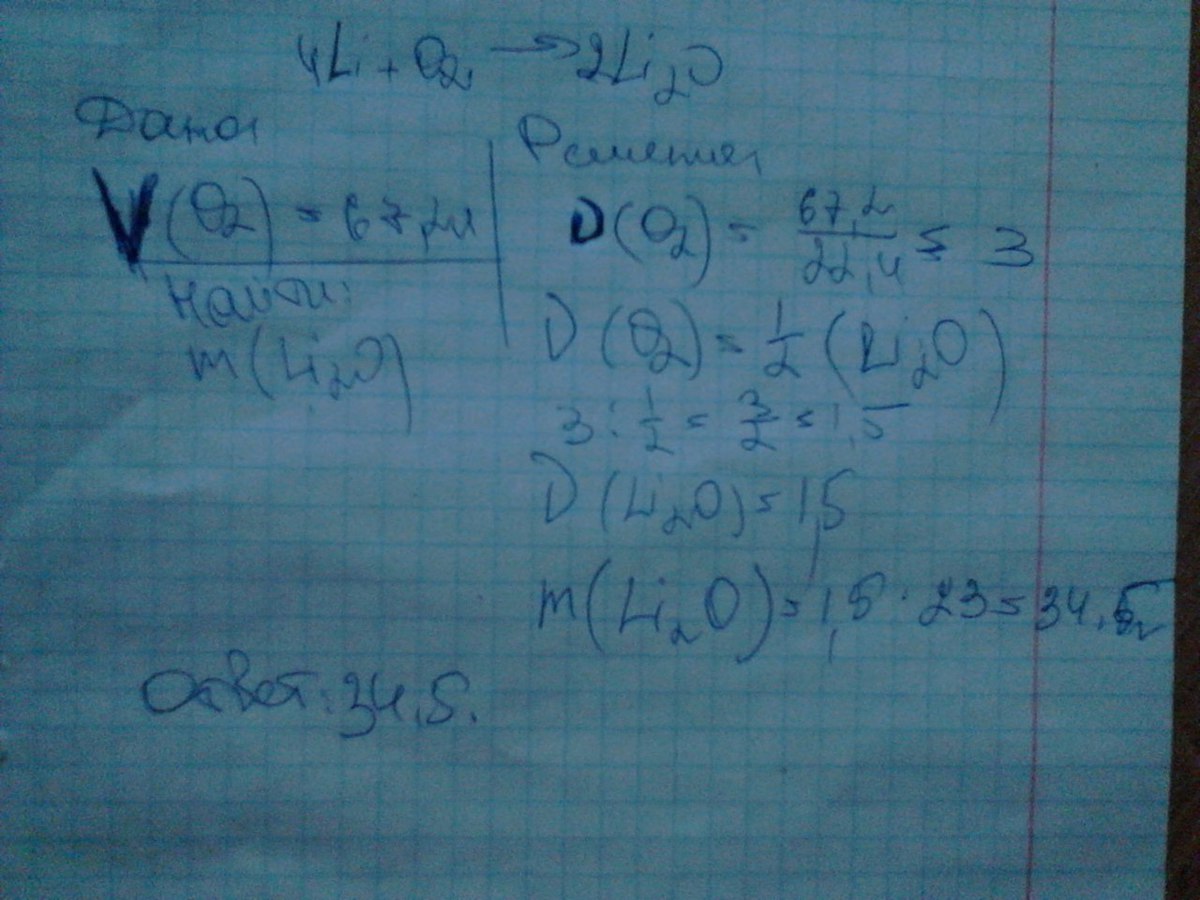 4Li + O₂ → 2Li₂O
Дано:
V(O₂) = 67,2л
Найти:
m(Li₂O)
Решение:
ν(O₂) = 67,2/22,4 = 3
ν(O₂) = 1/2 (Li₂O)
3 : 1/2 = 3/2 = 1,5
ν(Li₂O) = 1,5
m(Li₂O) = 1,5 · 23 = 34,5г
Ответ: 34,5.